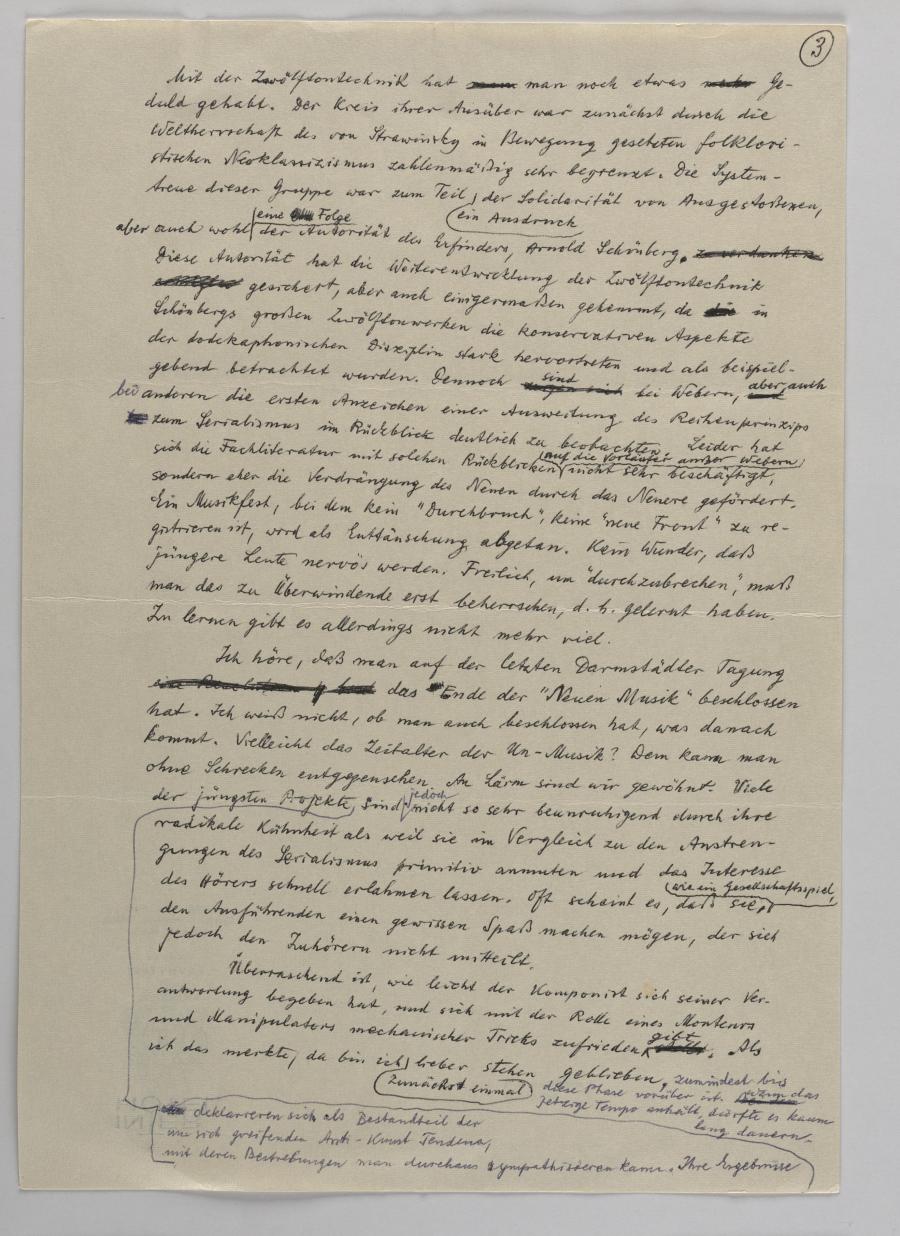 3
Mit der Zwölftontechnik hat man noch etwas Ge-
duld gehabt. Der Kreis ihrer Ausüber war zunächst durch die
Weltherrschaft des von Strawinsky in Bewegung gesetzten folklori-
stischen Neoklassizismus zahlenmäßig sehr begrenzt. Die System-
treue dieser Gruppe war zum Teil der Solidarität von Ausgestoßenen,
eine Folge
ein Ausdruck
aber auch wohl der Autorität des Erfinders, Arnold Schönberg. zu verdanken
Diese Autorität hat die Weiterentwicklung der Zwölftontechnik
gesichert, aber auch einigermaßen gehemmt, da die in
Schönbergs großen Zwölftonwerken die konservativen Aspekte
der dodekaphonischen Disziplin stark hervortreten und als beispiel-
gebend betrachtet wurden. Dennoch sind bei Webern, aber auch
bei anderen die ersten Anzeichen einer Ausweitung des Reihenprinzips
zum Serialismus im Rückblick deutlich zu beobachten. Leider hat
auf die Vorläufer außer Webern
sich die Fachliteratur mit solchen Rückblicken nicht sehr beschäftigt,
sondern eher die Verdrängung des Neuen durch das Neuere gefördert.
Ein Musikfest, bei dem kein "Durchbruch", keine "neue Front" zu re-
gistrieren ist, wird als Enttäuschung abgetan. Kein Wunder, daß
jüngere Leute nervös werden. Freilich, um "durchzubrechen", muß
man das zu Überwindende erst beherrschen, d. h. gelernt haben.
Zu lernen gibt es allerdings nicht mehr viel.
Ich höre, daß man auf der letzten Darmstädter Tagung
das Ende der "Neuen Musik" beschlossen
hat. Ich weiß nicht, ob man auch beschlossen hat, was danach
kommt. Vielleicht das Zeitalter der Un-Musik? Dem kann man
ohne Schrecken entgegensehen. An Lärm sind wir gewöhnt. Viele
jedoch
der jüngsten Projekte sind nicht so sehr beunruhigend durch ihre
radikale Kühnheit als weil sie im Vergleich zu den Anstren-
gungen des Serialismus primitiv anmuten und das Interesse
wie ein Gesellschaftsspiel,
des Hörers schnell erlahmen lassen. Oft scheint es, daß sie,
den Ausführenden einen gewissen Spaß machen mögen, der sich
jedoch den Zuhörern nicht mitteilt.
Überraschend ist, wie leicht der Komponist sich seiner Ver-
antwortung begeben hat, und sich mit der Rolle eines Monteurs
und Manipulators mechanischer Tricks zufrieden gibt. Als
ich das merkte, da bin ich lieber stehen geblieben, zumindest bis
zunächst einmal
diese Phase vorüber ist. Wenn das
jetzige Tempo anhält, dürfte es kaum
lang dauern.
deklarieren sich als Bestandteil der
um sich greifenden Anti-Kunst Tendenz,
mit deren Bestrebungen man durchaus sympathisieren kann. Ihre Ergebnisse